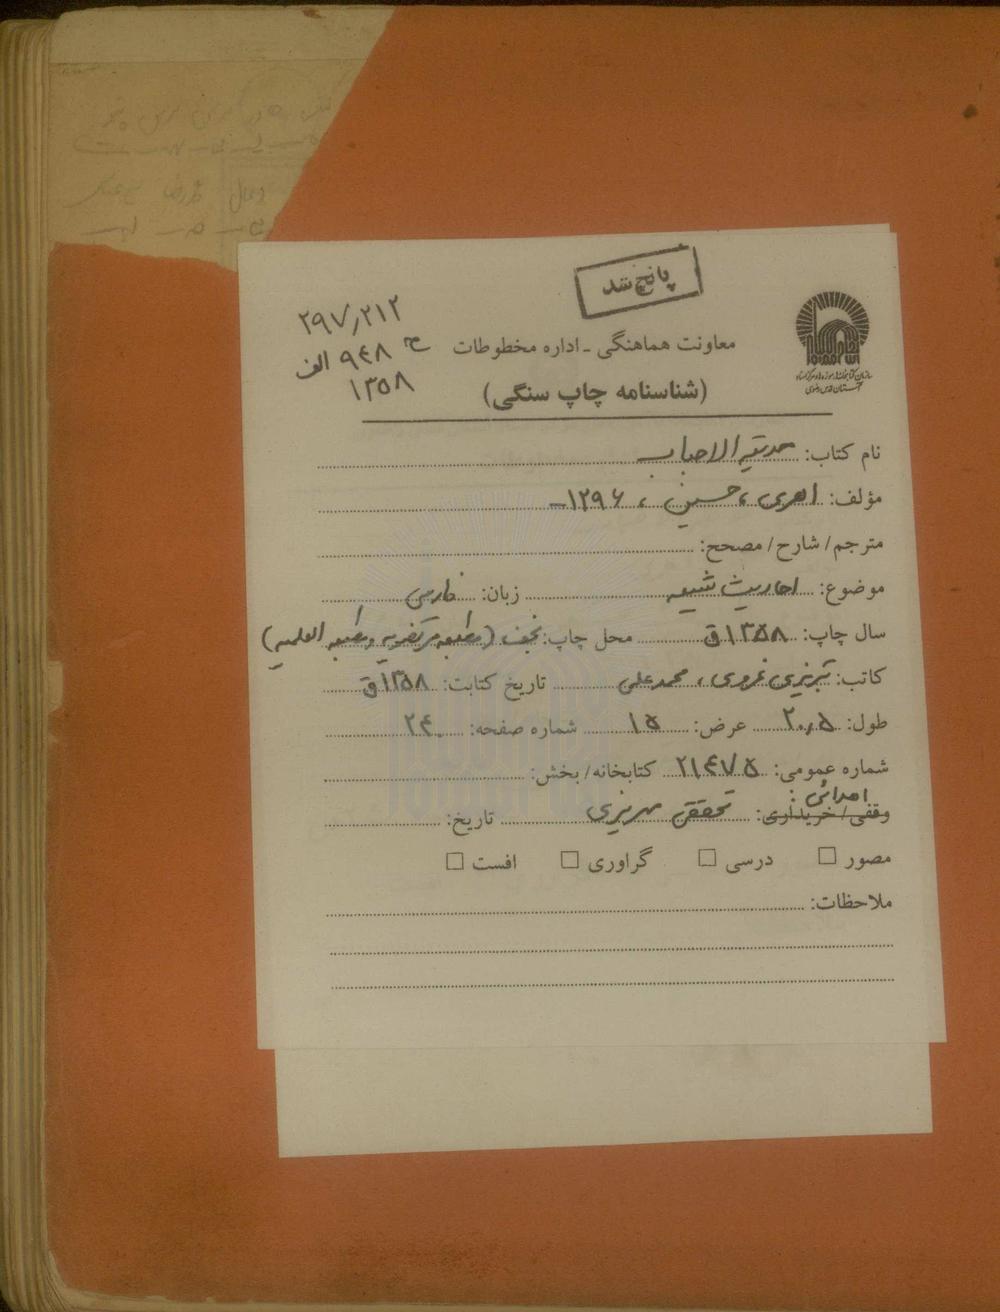 پانچ شد
۲۹۷٫۲۱۲
ح ۹۴۸ الف
۱۳۵۸
سازمان کتابخانه‌ها، موزه‌ها و مرکز اسناد
آستان قدس رضوی
معاونت هماهنگی ـ اداره مخطوطات
(شناسنامه چاپ سنگی)
نام کتاب: حدیقة الاحباب
مؤلف: اهری، حسین، ۱۲۹۶ـ
مترجم/ شارح/ مصحح:
موضوع: احادیث شیعه زبان: فارسی
سال چاپ: ۱۳۵۸ق محل چاپ: نجف (مطبعه مرتضویه و مطبعه العلمیه)
کاتب: تبریزی غروی، محمدعلی تاریخ کتابت: ۱۳۵۸ق
طول: ۲۰٫۵ عرض: ۱۵ شماره صفحه: ۲۴۰
شماره عمومی: ۲۱۴۷۵ کتابخانه/ بخش:
اهدائی:
وقفی/ خریداری: تحققی مهریزی تاریخ:
مصور درسی گراوری افست
ملاحظات: